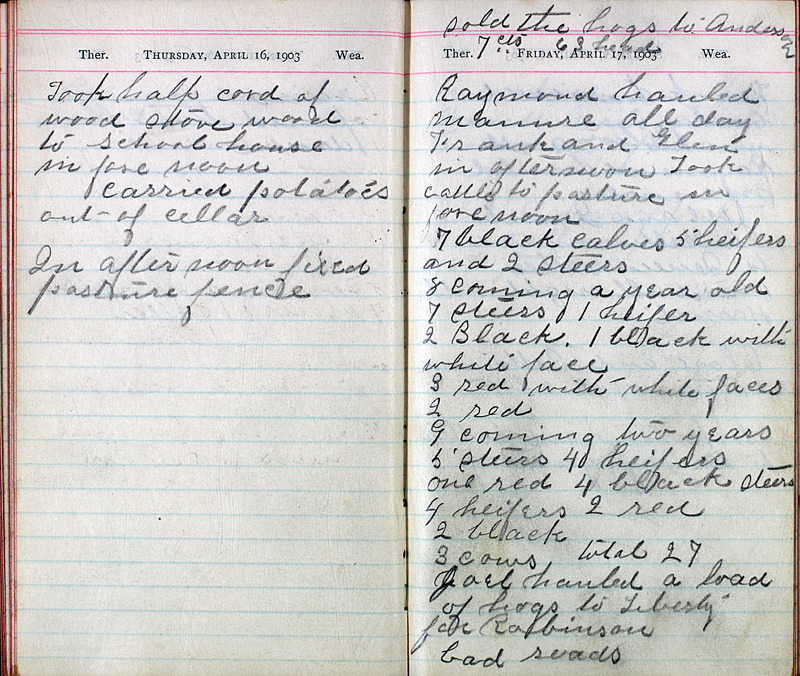 Ther. THURSDAY, APRIL 16, 1903 Wea.
Took half cord of
wood stove wood
to school house
in fore noon
carried potatoes
out of cellar
In after noon fixed
pasture fence
sold the hogs to Anderson
7 cts 63 head
Ther. FRIDAY, APRIL 17, 1903 Wea.
Raymond hauled
manure all day
Frank and Glen
in afternoon Took
cattle to pasture in
fore noon
7 black calves 5 heifers
and 2 steers
8 coming a year old
7 steers 1 heifer
2 Black. 1 black with
white face
3 red with white faces
2 red
9 coming two years
5 steers 4 heifers
one red 4 black steers
4 heifers 2 red
2 black
3 cows total 27
Joel hauled a load
of hogs to Liberty
for Robinson
bad roads